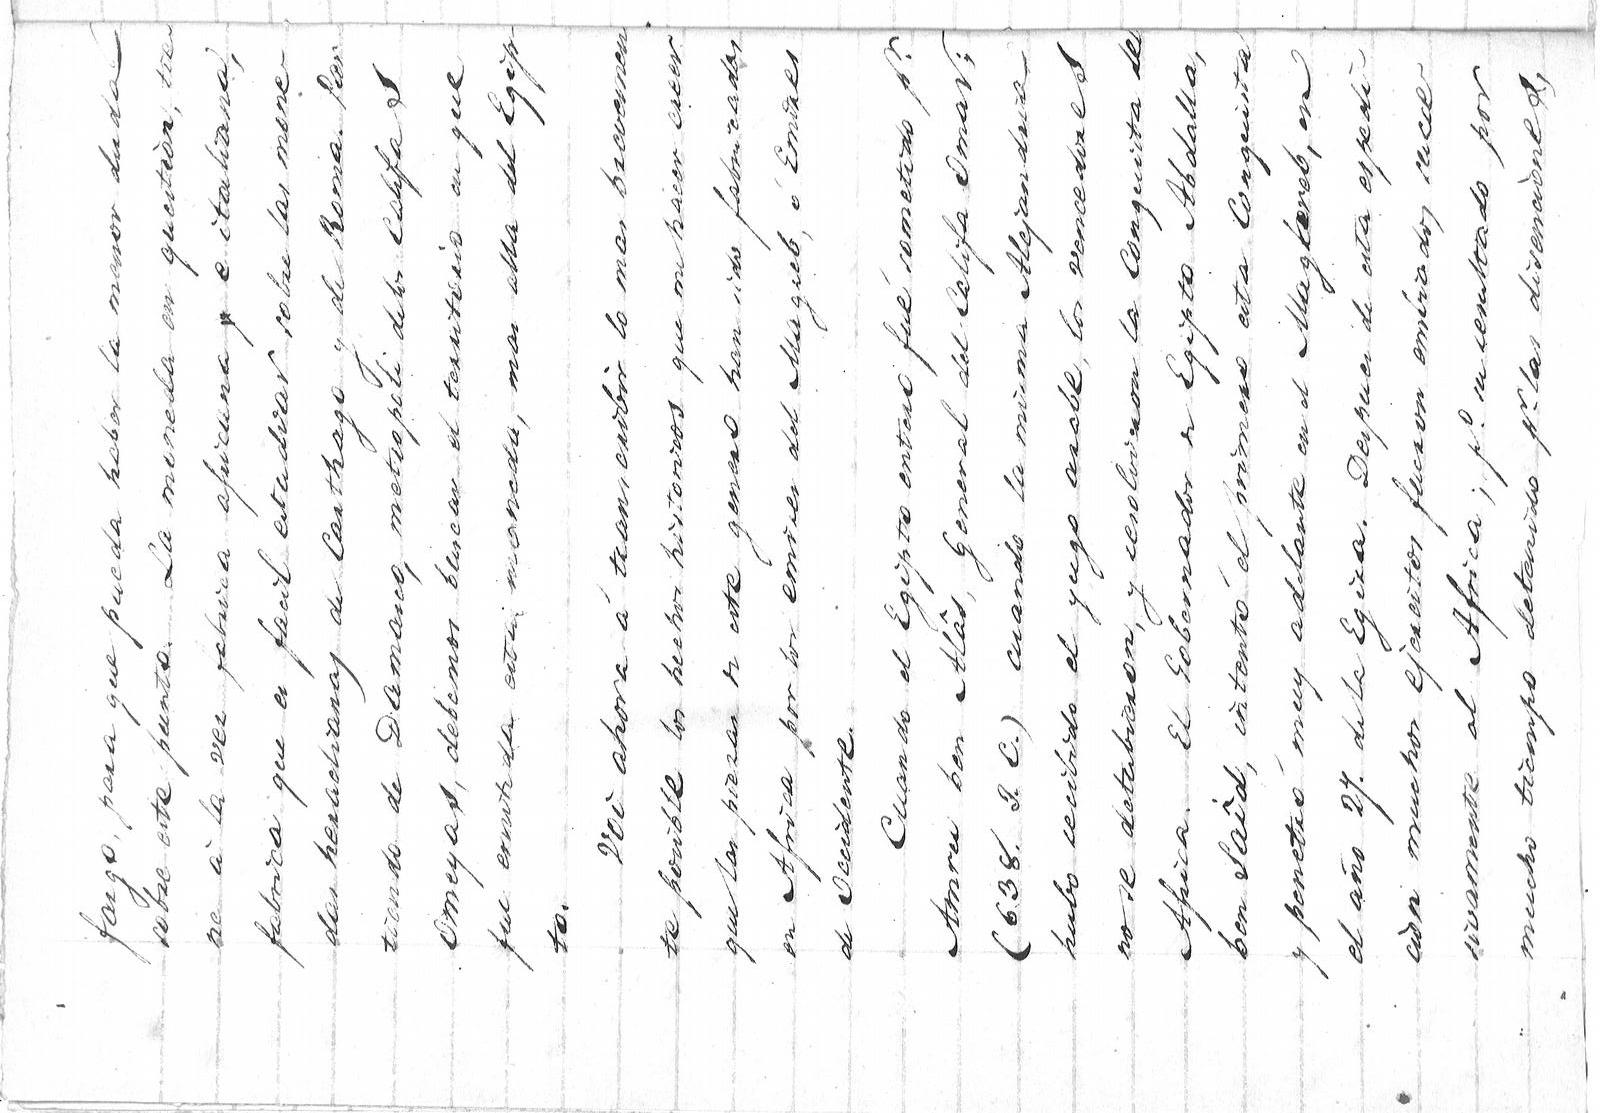 fargo, para que pueda haber la menor duda
sobre este punto. La moneda en questión, tie
ne à la vez fabrica africana y e itahiana,
fabrica que es facil estudiar, sobre las mone
das heraclianas de Carthago y de Roma. Par
tiendo de Damasco, metropoli de los Califas
Omeyas, debemos buscar el territorio en que
fue emitida esta moneda, mas alla del Egip
to.
Voi ahora à transcribir lo mas brevemen
te posible los hechos historicos que me hacen creer
que las piezas de este genero han sido fabricadas
en Africa por los emires del Magreb, ò Emires
de Occidente.
Cuando el Egipto entero fué sometido pr.
Amru ben Alâs, General del Califa Omar;
(638. J. C.) cuando la misma Alejandria
hubo recibido el yugo arabe, los vencedores
no se detubieron, y resolvieron la Conquista de
Africa. El Gobernador de Egipto Abdalla,
ben Said, intentó el primero esta Conquista
y penetró muy adelante en el Magreb, en
el año 27. de la Egira. Despues de esta espedi
cion muchos ejercitos fueron embiados suce
sivamente al Africa; po. su resultado por
mucho tiempo detenido pr. las disensiones,